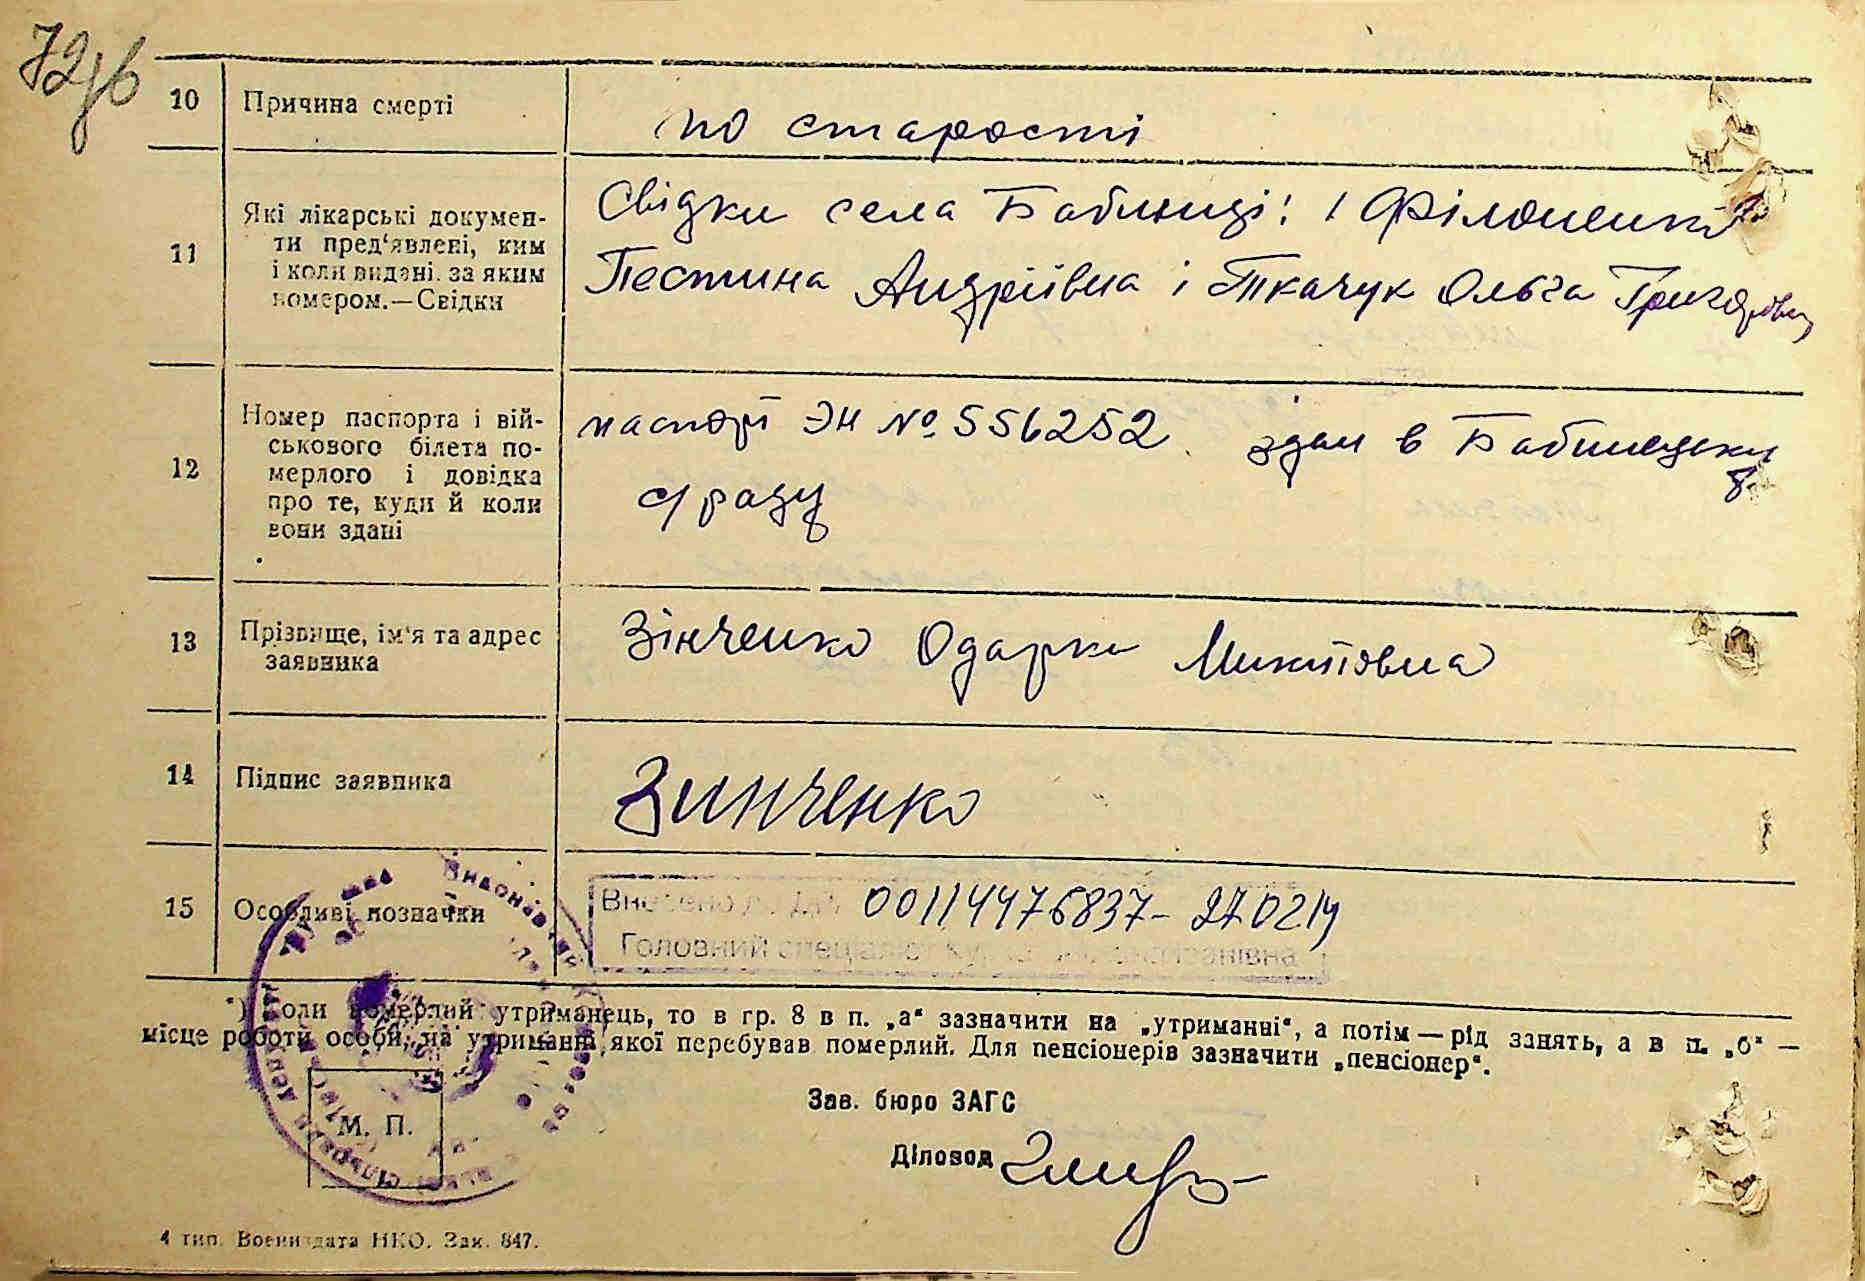 72зв
10 Причина смерті по старості
11 Які лікарські докумен-
ти пред'явлені, ким
і коли видані. за яким
номером.—Свідки
Свідки села Бабинці: 1 Філоненко
Пестина Андріївна і Ткачук Ольга Григорівна
12 Номер паспорта і вій-
ськового білета по-
мерлого і довідка
про те, куди й коли
вони здані
паспорт ЭН № 556252 здан в Бабинецьку
с/раду
13 Прізвище, ім'я та адрес
заявника
Зінченко Одарка Микитовна
14 Підпис заявника Зинченко
15 Особливі позначки
Внесено до 00114476837- 270214
Головний спеціаліст
*) Коли померлий утриманець, то в гр. 8 в п. „а“ зазначити на „утриманні“, а потім — рід занять, а в п. „б“ —
місце роботи особи, на утриманні якої перебував померлий. Для пенсіонерів зазначити „пенсіонер“.
Зав. бюро ЗАГС
Діловод
М. П.
4 тип. Воениздата НКО. Зак. 847.